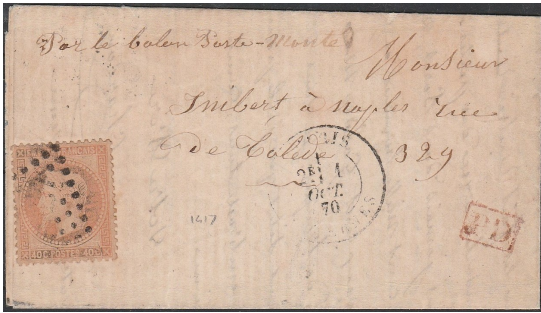 Par le balon Poste-Monté
Monsieur
Imbert à naples rue
de Tolede 329
PARIS
2E
OCT.
70
1417
40 C POSTES 40 C
P.D